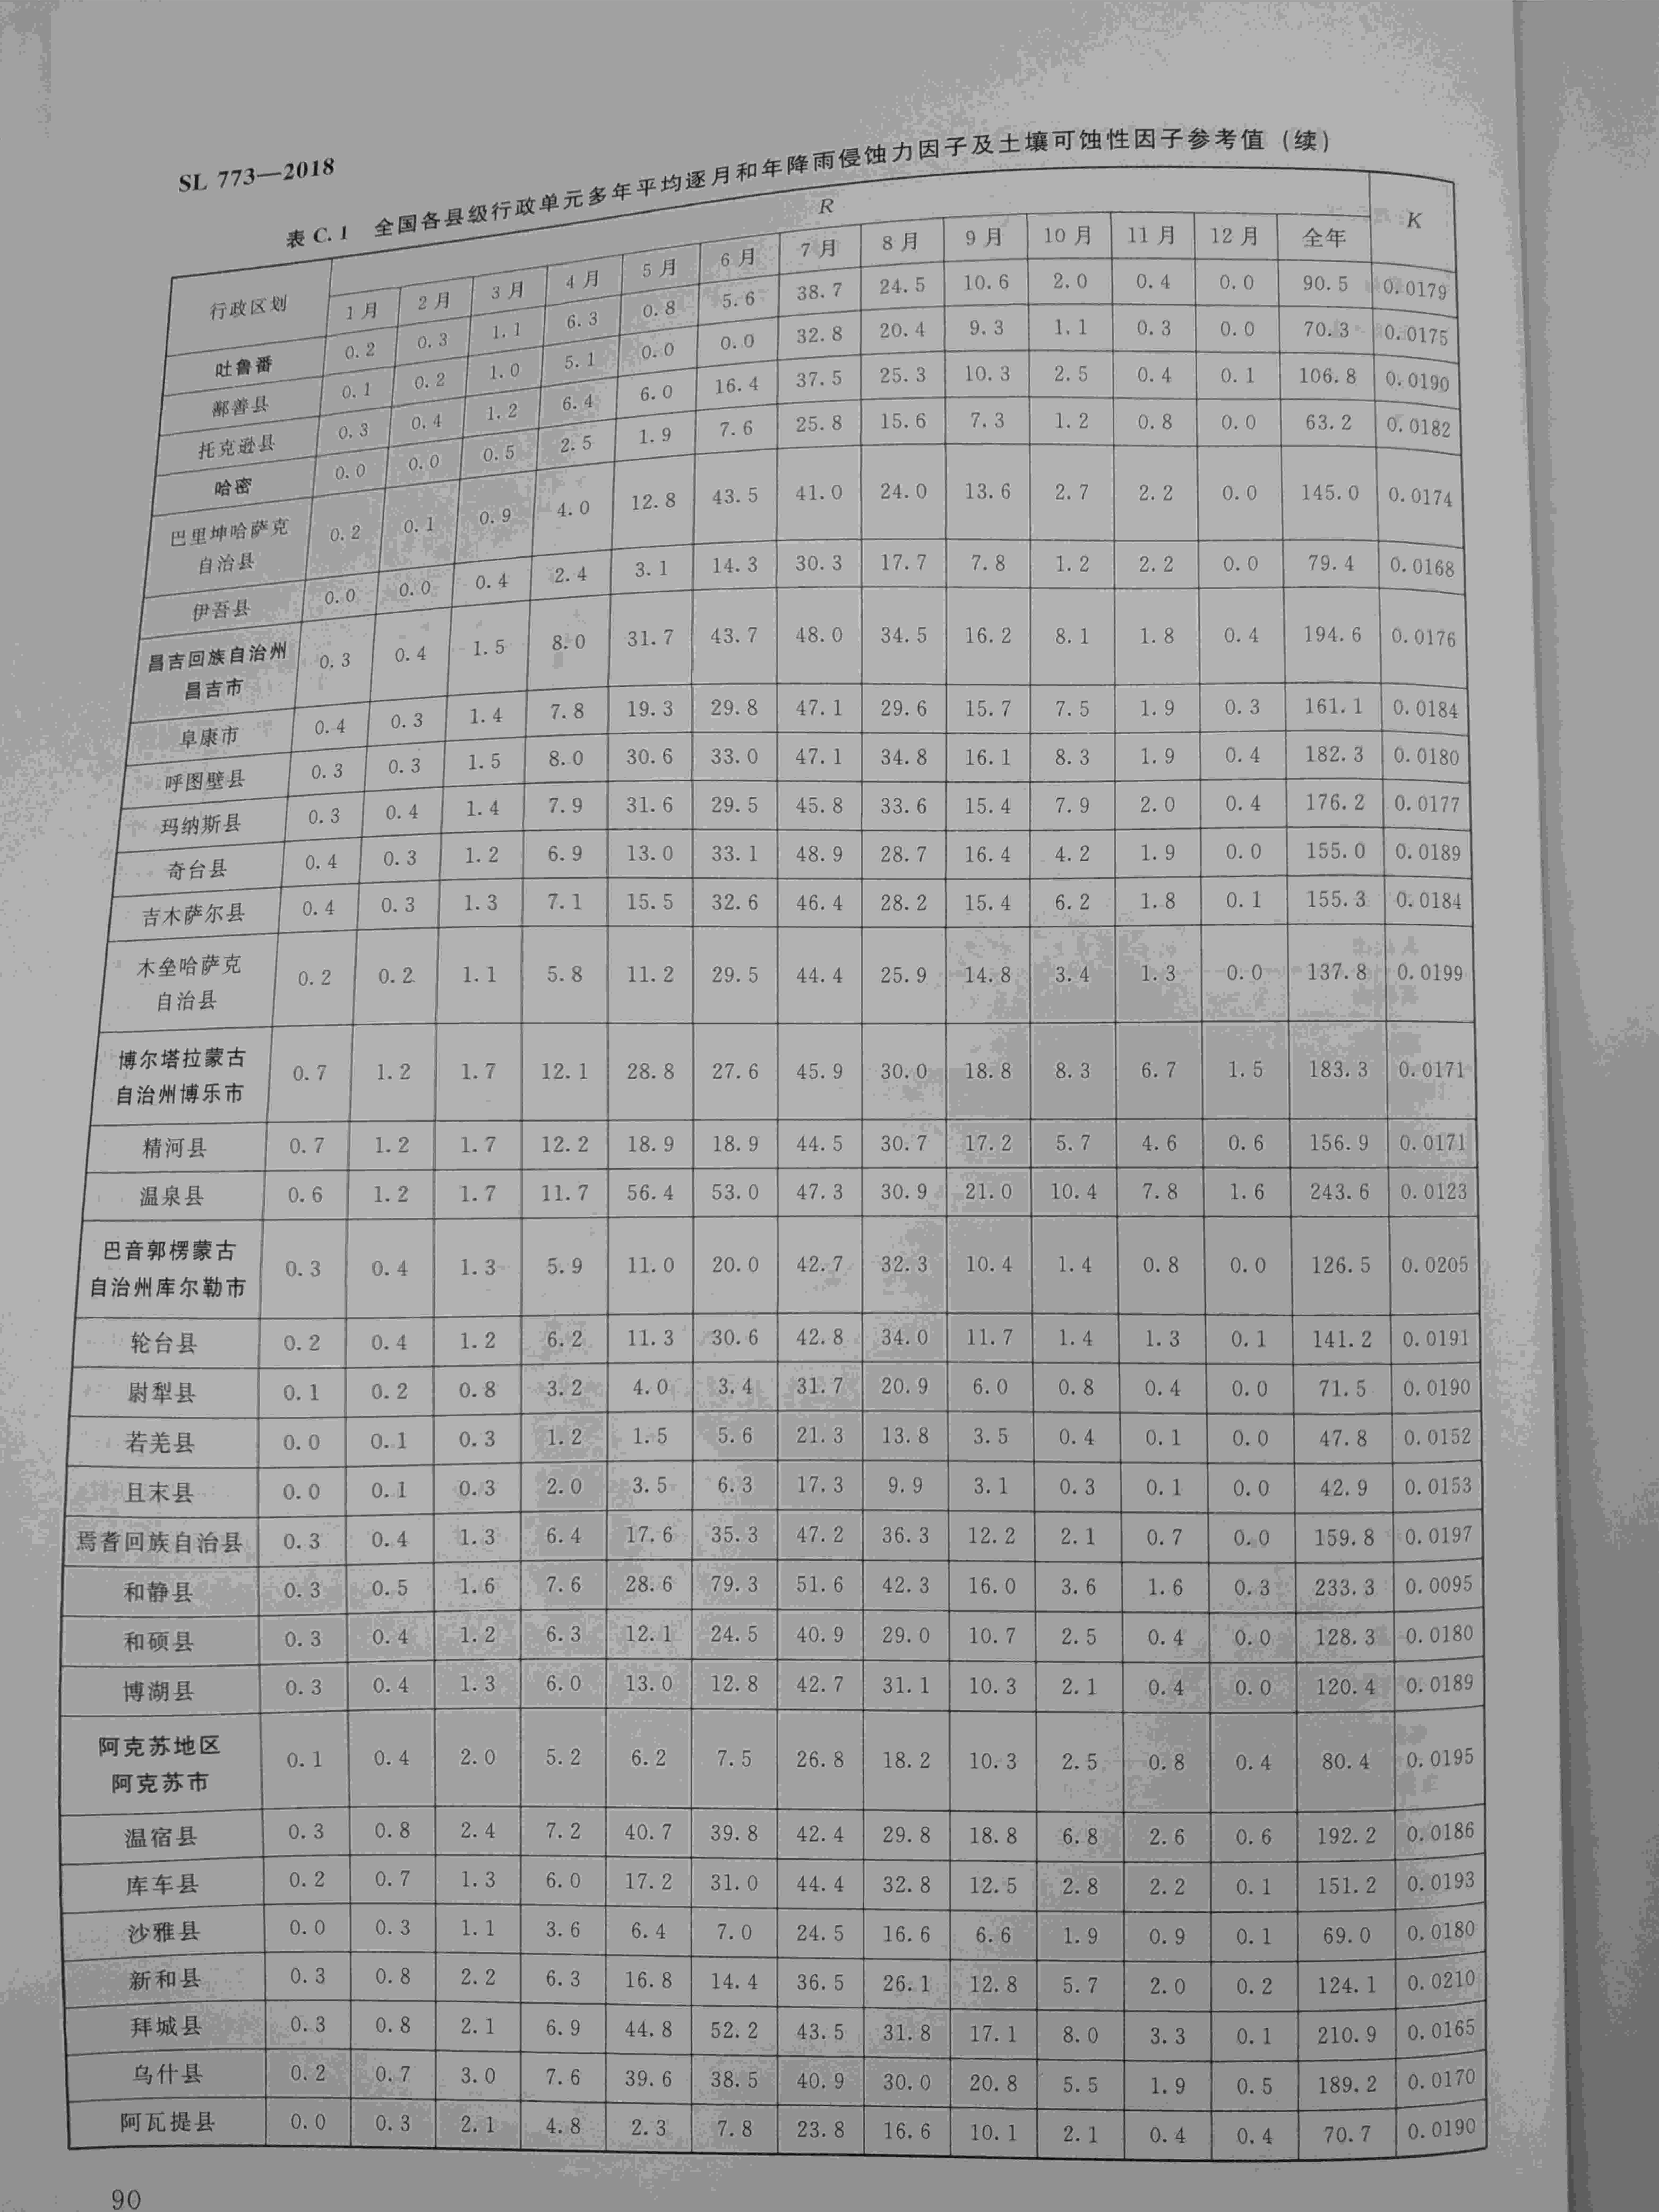 SL 773—2018
表 C.1 全国各县级行政单元多年平均逐月和年降雨侵蚀力因子及土壤可蚀性因子参考值 (续)
行政区划 R K
1月 2月 3月 4月 5月 6月 7月 8月 9月 10月 11月 12月 全年
吐鲁番 0.2 0.3 1.1 6.3 0.8 5.6 38.7 24.5 10.6 2.0 0.4 0.0 90.5 0.0179
鄯善县 0.1 0.2 1.0 5.1 0.0 0.0 32.8 20.4 9.3 1.1 0.3 0.0 70.3 0.0175
托克逊县 0.3 0.4 1.2 6.4 6.0 16.4 37.5 25.3 10.3 2.5 0.4 0.1 106.8 0.0190
哈密 0.0 0.0 0.5 2.5 1.9 7.6 25.8 15.6 7.3 1.2 0.8 0.0 63.2 0.0182
巴里坤哈萨克
自治县 0.2 0.1 0.9 4.0 12.8 43.5 41.0 24.0 13.6 2.7 2.2 0.0 145.0 0.0174
伊吾县 0.0 0.0 0.4 2.4 3.1 14.3 30.3 17.7 7.8 1.2 2.2 0.0 79.4 0.0168
昌吉回族自治州
昌吉市 0.3 0.4 1.5 8.0 31.7 43.7 48.0 34.5 16.2 8.1 1.8 0.4 194.6 0.0176
阜康市 0.4 0.3 1.4 7.8 19.3 29.8 47.1 29.6 15.7 7.5 1.9 0.3 161.1 0.0184
呼图壁县 0.3 0.3 1.5 8.0 30.6 33.0 47.1 34.8 16.1 8.3 1.9 0.4 182.3 0.0180
玛纳斯县 0.3 0.4 1.4 7.9 31.6 29.5 45.8 33.6 15.4 7.9 2.0 0.4 176.2 0.0177
奇台县 0.4 0.3 1.2 6.9 13.0 33.1 48.9 28.7 16.4 4.2 1.9 0.0 155.0 0.0189
吉木萨尔县 0.4 0.3 1.3 7.1 15.5 32.6 46.4 28.2 15.4 6.2 1.8 0.1 155.3 0.0184
木垒哈萨克
自治县 0.2 0.2 1.1 5.8 11.2 29.5 44.4 25.9 14.8 3.4 1.3 0.0 137.8 0.0199
博尔塔拉蒙古
自治州博乐市 0.7 1.2 1.7 12.1 28.8 27.6 45.9 30.0 18.8 8.3 6.7 1.5 183.3 0.0171
精河县 0.7 1.2 1.7 12.2 18.9 18.9 44.5 30.7 17.2 5.7 4.6 0.6 156.9 0.0171
温泉县 0.6 1.2 1.7 11.7 56.4 53.0 47.3 30.9 21.0 10.4 7.8 1.6 243.6 0.0123
巴音郭楞蒙古
自治州库尔勒市 0.3 0.4 1.3 5.9 11.0 20.0 42.7 32.3 10.4 1.4 0.8 0.0 126.5 0.0205
轮台县 0.2 0.4 1.2 6.2 11.3 30.6 42.8 34.0 11.7 1.4 1.3 0.1 141.2 0.0191
尉犁县 0.1 0.2 0.8 3.2 4.0 3.4 31.7 20.9 6.0 0.8 0.4 0.0 71.5 0.0190
若羌县 0.0 0.1 0.3 1.2 1.5 5.6 21.3 13.8 3.5 0.4 0.1 0.0 47.8 0.0152
且末县 0.0 0.1 0.3 2.0 3.5 6.3 17.3 9.9 3.1 0.3 0.1 0.0 42.9 0.0153
焉耆回族自治县 0.3 0.4 1.3 6.4 17.6 35.3 47.2 36.3 12.2 2.1 0.7 0.0 159.8 0.0197
和静县 0.3 0.5 1.6 7.6 28.6 79.3 51.6 42.3 16.0 3.6 1.6 0.3 233.3 0.0095
和硕县 0.3 0.4 1.2 6.3 12.1 24.5 40.9 29.0 10.7 2.5 0.4 0.0 128.3 0.0180
博湖县 0.3 0.4 1.3 6.0 13.0 12.8 42.7 31.1 10.3 2.1 0.4 0.0 120.4 0.0189
阿克苏地区
阿克苏市 0.1 0.4 2.0 5.2 6.2 7.5 26.8 18.2 10.3 2.5 0.8 0.4 80.4 0.0195
温宿县 0.3 0.8 2.4 7.2 40.7 39.8 42.4 29.8 18.8 6.8 2.6 0.6 192.2 0.0186
库车县 0.2 0.7 1.3 6.0 17.2 31.0 44.4 32.8 12.5 2.8 2.2 0.1 151.2 0.0193
沙雅县 0.0 0.3 1.1 3.6 6.4 7.0 24.5 16.6 6.6 1.9 0.9 0.1 69.0 0.0180
新和县 0.3 0.8 2.2 6.3 16.8 14.4 36.5 26.1 12.8 5.7 2.0 0.2 124.1 0.0210
拜城县 0.3 0.8 2.1 6.9 44.8 52.2 43.5 31.8 17.1 8.0 3.3 0.1 210.9 0.0165
乌什县 0.2 0.7 3.0 7.6 39.6 38.5 40.9 30.0 20.8 5.5 1.9 0.5 189.2 0.0170
阿瓦提县 0.0 0.3 2.1 4.8 2.3 7.8 23.8 16.6 10.1 2.1 0.4 0.4 70.7 0.0190
90